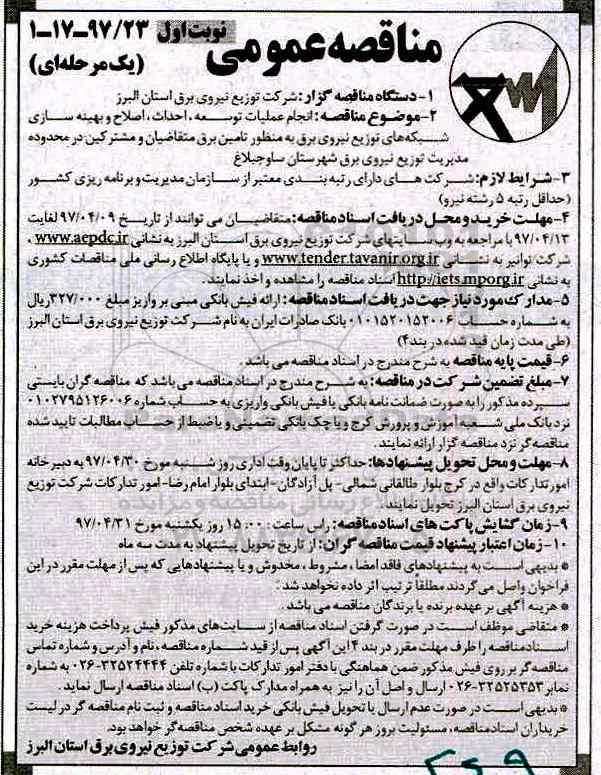 مناقصه عمومی
نوبت اول
۱-۱۷-۹۷/۲۳
(یک مرحله‌ای)
۱- دستگاه مناقصه گزار: شرکت توزیع نیروی برق استان البرز
۲- موضوع مناقصه: انجام عملیات توسعه، احداث، اصلاح و بهینه سازی
شبکه‌های توزیع نیروی برق به منظور تامین برق متقاضیان و مشترکین در محدوده
مدیریت توزیع نیروی برق شهرستان ساوجبلاغ
۳- شرایط لازم: شرکت های دارای رتبه بندی معتبر از سازمان مدیریت و برنامه ریزی کشور
(حداقل رتبه ۵ رشته نیرو)
۴- مهلت خرید و محل دریافت اسناد مناقصه: متقاضیان می توانند از تاریخ ۹۷/۰۴/۰۹ لغایت
۹۷/۰۴/۱۳ با مراجعه به وب سایتهای شرکت توزیع نیروی برق استان البرز به نشانی www.aepdc.ir ،
شرکت توانیر به نشانی www.tender.tavanir.org.ir و یا پایگاه اطلاع رسانی ملی مناقصات کشوری
به نشانی http://iets.mporg.ir اسناد مناقصه را مشاهده و اخذ نمایند.
۵- مدارک مورد نیاز جهت دریافت اسناد مناقصه: ارائه فیش بانکی مبنی بر واریز مبلغ ۳۲۷/۰۰۰ ریال
به شماره حساب ۰۱۰۱۵۲۰۱۵۲۰۰۶ بانک صادرات ایران به نام شرکت توزیع نیروی برق استان البرز
(طی مدت زمان قید شده در بند ۴)
۶- قیمت پایه مناقصه به شرح مندرج در اسناد مناقصه می باشد.
۷- مبلغ تضمین شرکت در مناقصه: به شرح مندرج در اسناد مناقصه می باشد که مناقصه گران بایستی
سپرده مذکور را به صورت ضمانت نامه بانکی یا فیش بانکی واریزی به حساب شماره ۰۱۰۲۷۹۵۱۲۶۰۰۶
نزد بانک ملی شعبه آموزش و پرورش کرج و یا چک بانکی تضمینی و یا ضبط از حساب مطالبات تایید شده
مناقصه‌گر نزد مناقصه گزار ارائه نمایند.
۸- مهلت و محل تحویل پیشنهادها: حداکثر تا پایان وقت اداری روز شنبه مورخ ۹۷/۰۴/۳۰ به دبیرخانه
امور تدارکات واقع در کرج بلوار طالقانی شمالی- پل آزادگان- ابتدای بلوار امام رضا- امور تدارکات شرکت توزیع
نیروی برق استان البرز تحویل نمایند.
۹- زمان گشایش پاکت های اسناد مناقصه: راس ساعت ۱۵:۰۰ روز یکشنبه مورخ ۹۷/۰۴/۳۱
۱۰- زمان اعتبار پیشنهاد قیمت مناقصه گران: از تاریخ تحویل پیشنهاد به مدت سه ماه
* بدیهی است به پیشنهادهای فاقد امضا، مشروط، مخدوش و یا پیشنهادهایی که پس از مهلت مقرر در این
فراخوان واصل می گردند مطلقاً ترتیب اثر داده نخواهد شد.
* هزینه آگهی بر عهده برنده یا برندگان مناقصه می باشد.
* متقاضی موظف است در صورت گرفتن اسناد مناقصه از سایت‌های مذکور فیش پرداخت هزینه خرید
اسناد مناقصه را ظرف مهلت مقرر در بند ۴ این آگهی پس از قید شماره مناقصه، نام و آدرس و شماره تماس
مناقصه‌گر بر روی فیش مذکور ضمن هماهنگی با دفتر امور تدارکات با شماره تلفن ۳۲۵۲۴۴۴۴-۰۲۶ به شماره
نمابر ۳۲۵۲۵۳۵۳-۰۲۶ ارسال و اصل آن را نیز به همراه مدارک پاکت (ب) اسناد مناقصه ارسال نماید.
* بدیهی است در صورت عدم ارسال یا تحویل فیش بانکی خرید اسناد مناقصه و ثبت نام مناقصه گر در لیست
خریداران اسناد مناقصه، مسئولیت بروز هر گونه مشکل بر عهده شخص مناقصه‌گر خواهد بود.
روابط عمومی شرکت توزیع نیروی برق استان البرز